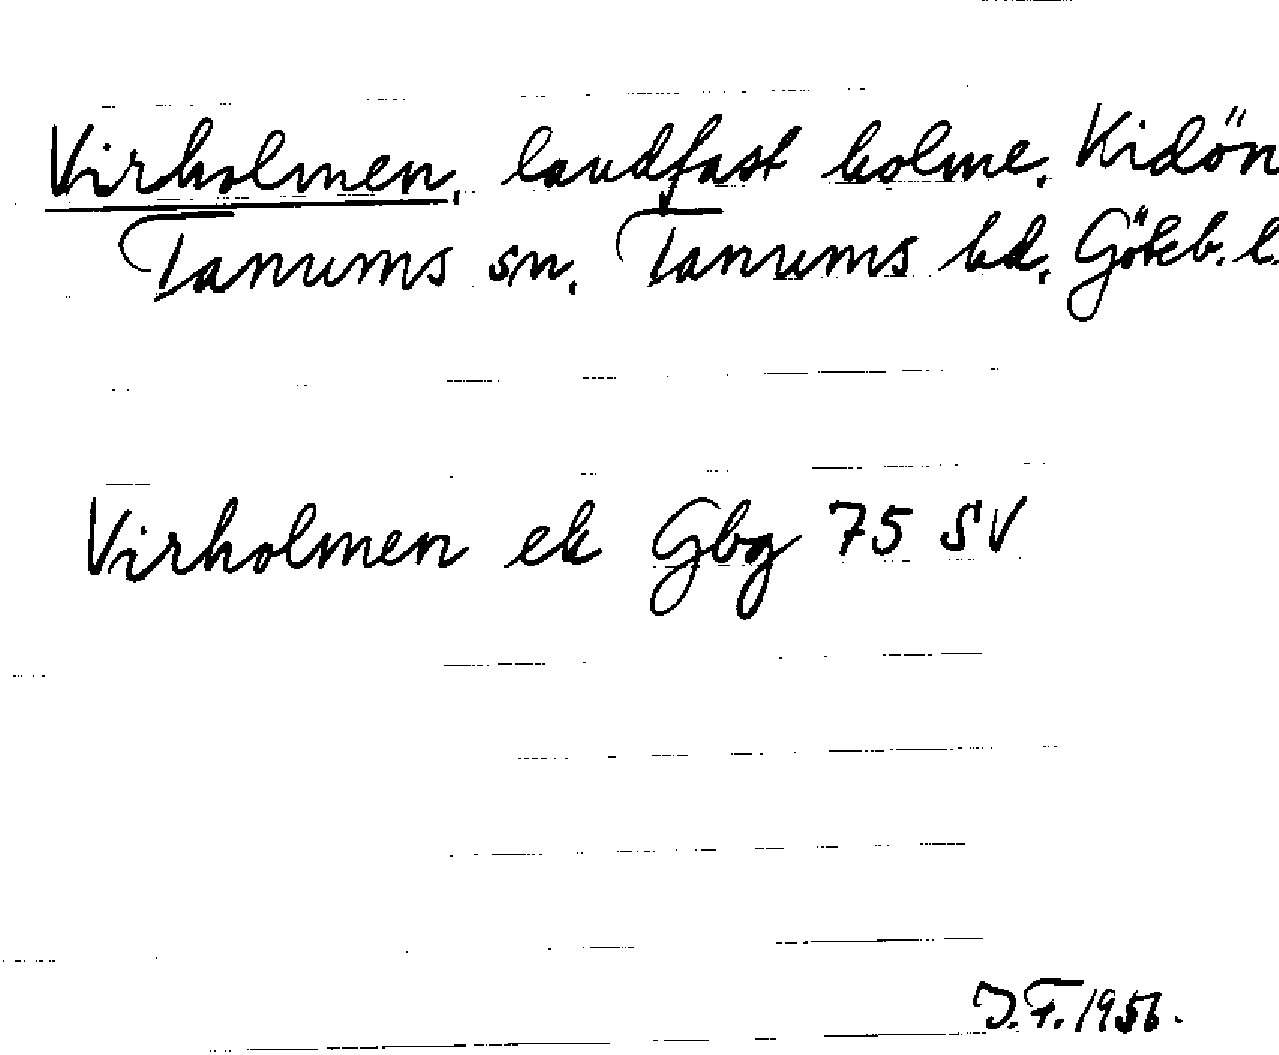 Virholmen, landfast holme, Kidön
Tanums sn, Tanums hd, Göteb. l.
Virholmen ek Gbg 75 SV
J.F. 1956.